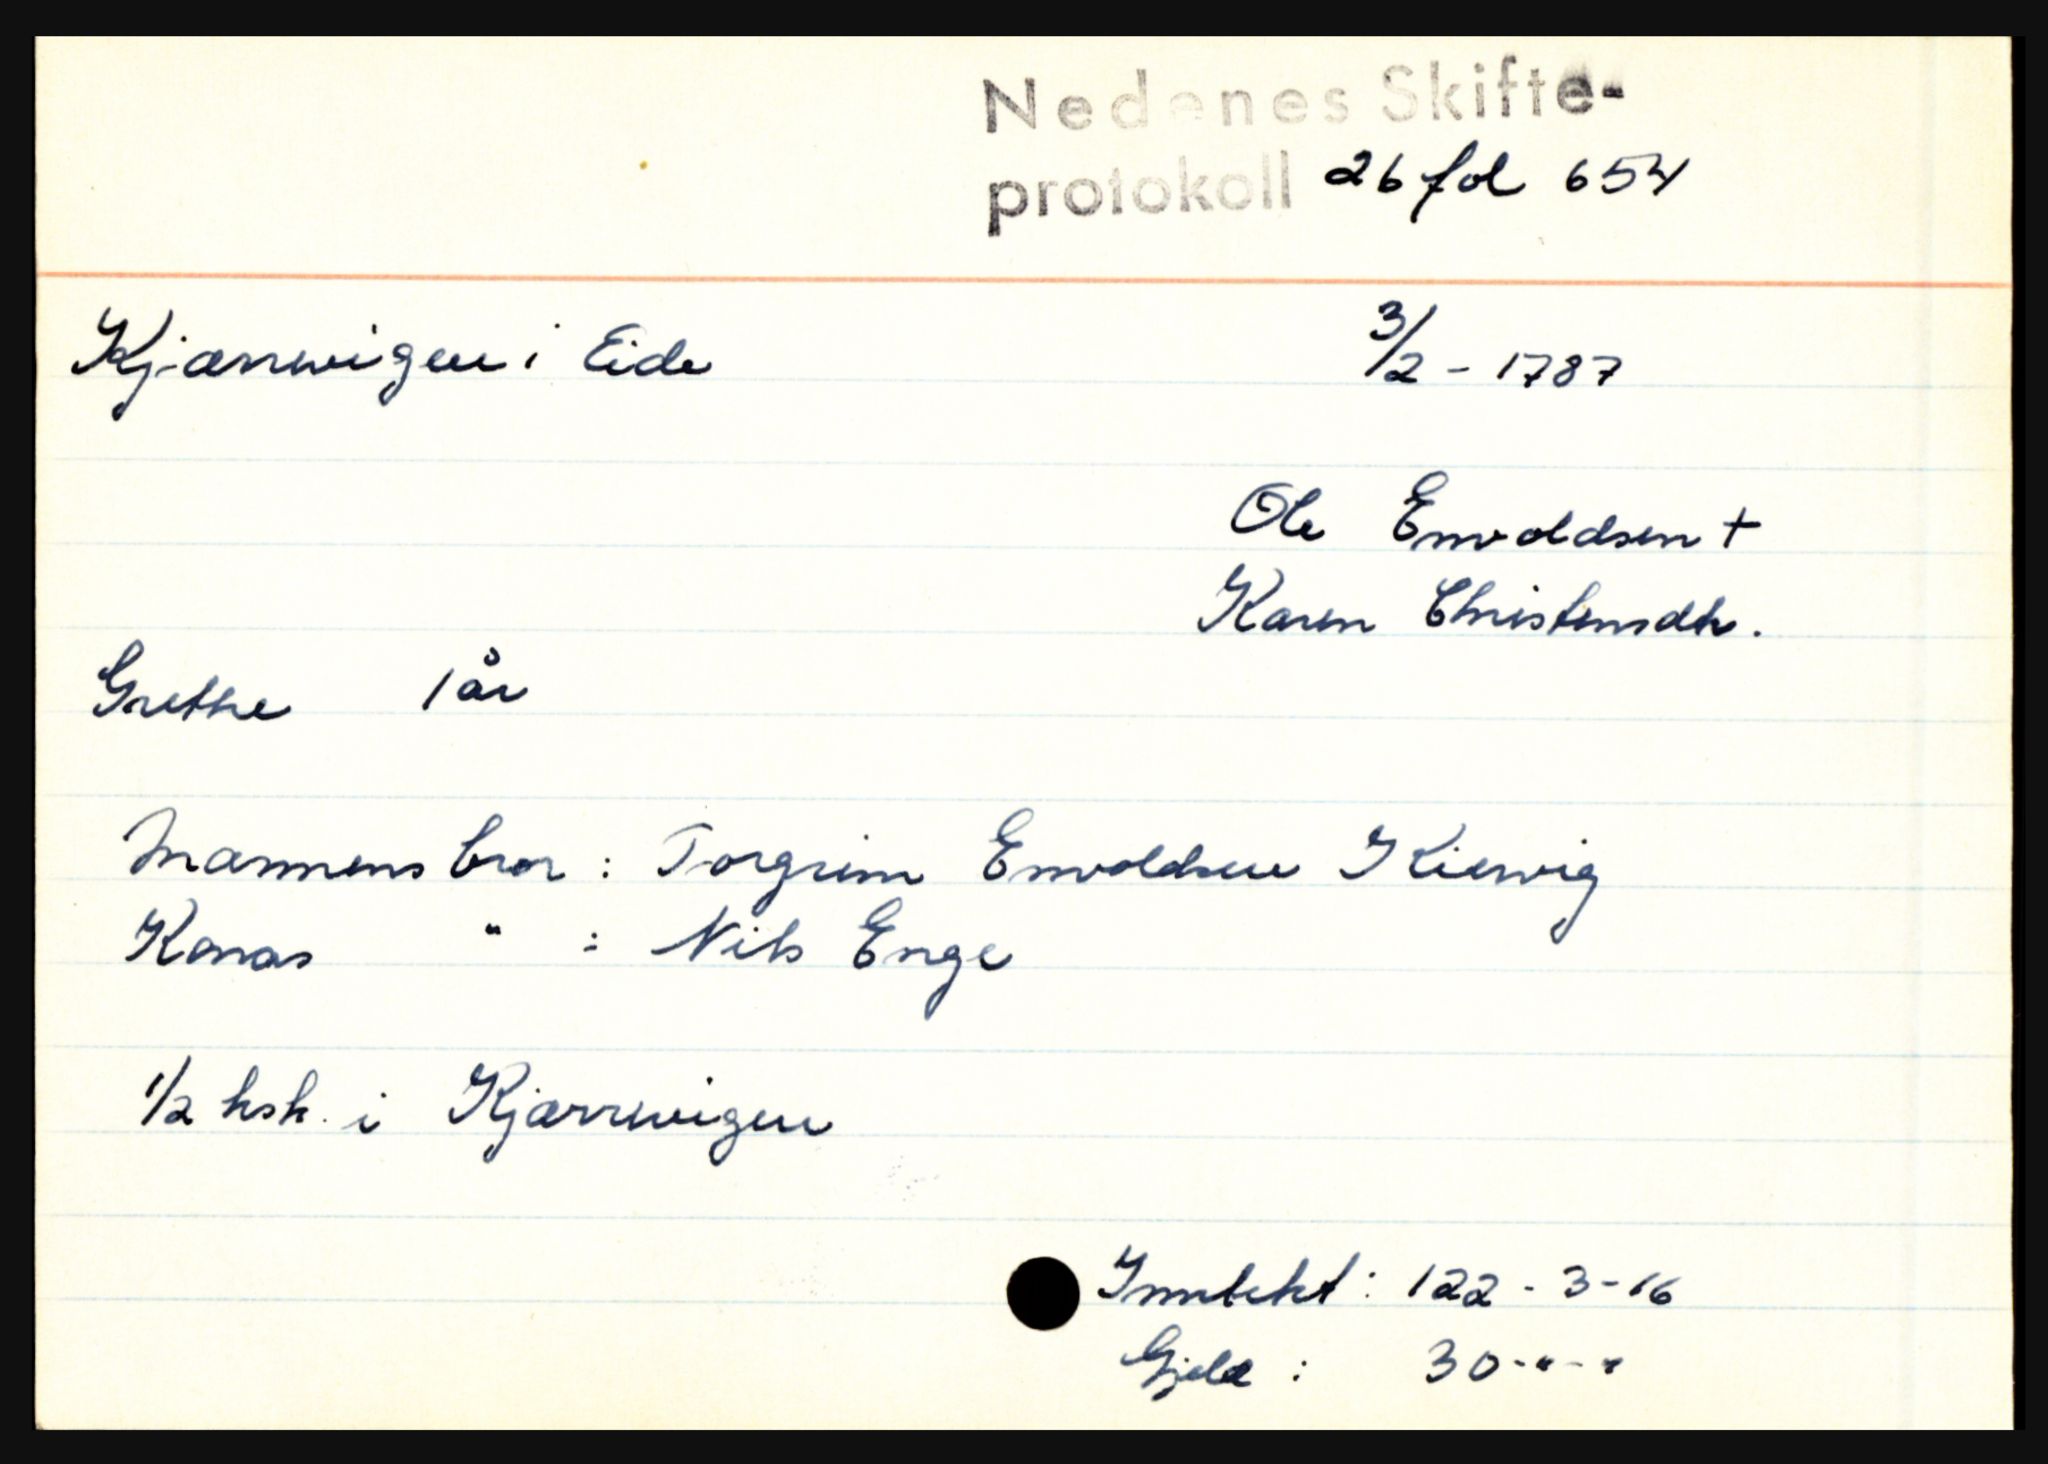 Nedenes Skifte-
protokoll 26 fol 654
Kjærrwigen i Eide 3/2 - 1787
Ole Envoldsen +
Karen Christensdtr.
Grethe 1 år
Mannens bror : Torgrim Envoldsen Kierwig
Konas " : Nils Enge
1/2 hsk. i Kjærrwigen
Inntekt : 122 - 3 - 16
Gjeld : 30 - " - "